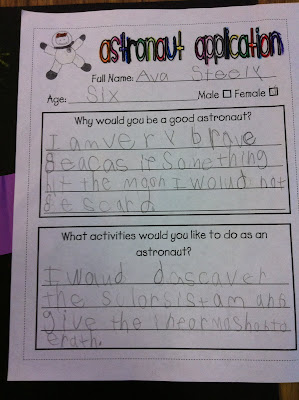 astronaut application
Full Name: Ava Steely
Age: Six Male Female
Why would you be a good astronaut?
I am very brave
Beacas if Something
hit the moon I woulud not
Be scard
What activities would you like to do as an
astronaut?
I waud dascaver
the solorsistam and
give the
erath.